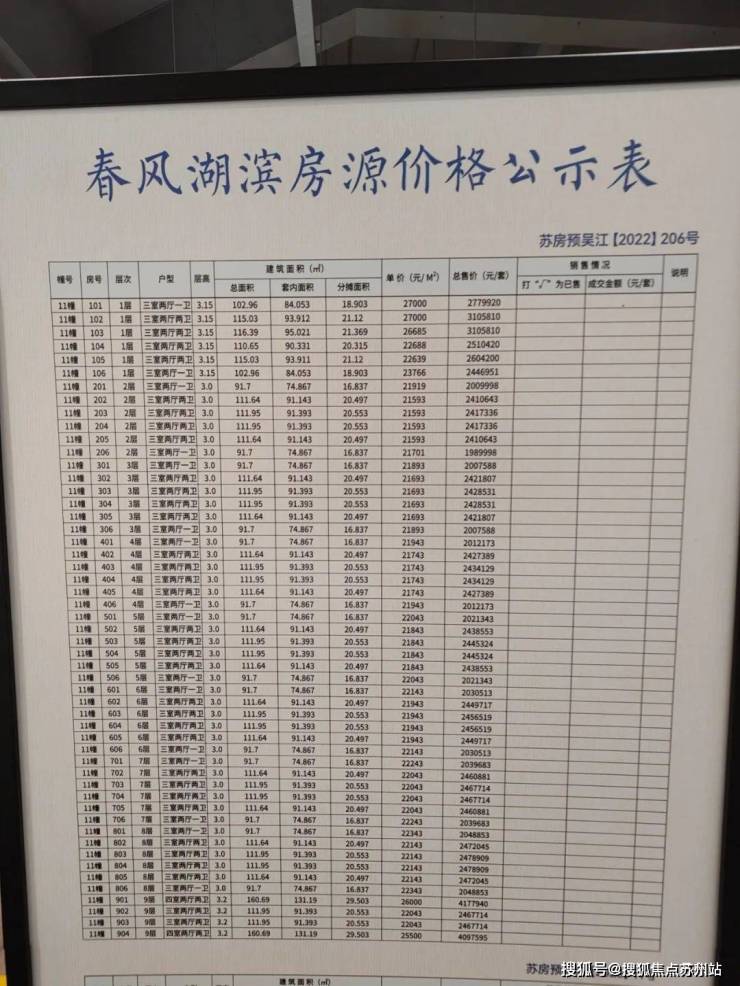 春风湖滨房源价格公示表
苏房预吴江【2022】206号
幢号 房号 层次 户型 层高 建筑面积（㎡） 单价（元/M²） 总售价（元/套） 销售情况 说明
总面积 套内面积 分摊面积 打“√”为已售 成交金额（元/套）
11幢 101 1层 三室两厅一卫 3.15 102.96 84.053 18.903 27000 2779920
11幢 102 1层 三室两厅两卫 3.15 115.03 93.912 21.12 27000 3105810
11幢 103 1层 三室两厅两卫 3.15 116.39 95.021 21.369 26685 3105810
11幢 104 1层 三室两厅两卫 3.15 110.65 90.331 20.315 22688 2510420
11幢 105 1层 三室两厅两卫 3.15 115.03 93.911 21.12 22639 2604200
11幢 106 1层 三室两厅一卫 3.15 102.96 84.053 18.903 23766 2446951
11幢 201 2层 三室两厅一卫 3.0 91.7 74.867 16.837 21919 2009998
11幢 202 2层 三室两厅两卫 3.0 111.64 91.143 20.497 21593 2410643
11幢 203 2层 三室两厅两卫 3.0 111.95 91.393 20.553 21593 2417336
11幢 204 2层 三室两厅两卫 3.0 111.95 91.393 20.553 21593 2417336
11幢 205 2层 三室两厅两卫 3.0 111.64 91.143 20.497 21593 2410643
11幢 206 2层 三室两厅一卫 3.0 91.7 74.867 16.837 21701 1989998
11幢 301 3层 三室两厅一卫 3.0 91.7 74.867 16.837 21893 2007588
11幢 302 3层 三室两厅两卫 3.0 111.64 91.143 20.497 21693 2421807
11幢 303 3层 三室两厅两卫 3.0 111.95 91.393 20.553 21693 2428531
11幢 304 3层 三室两厅两卫 3.0 111.95 91.393 20.553 21693 2428531
11幢 305 3层 三室两厅两卫 3.0 111.64 91.143 20.497 21693 2421807
11幢 306 3层 三室两厅一卫 3.0 91.7 74.867 16.837 21893 2007588
11幢 401 4层 三室两厅一卫 3.0 91.7 74.867 16.837 21943 2012173
11幢 402 4层 三室两厅两卫 3.0 111.64 91.143 20.497 21743 2427389
11幢 403 4层 三室两厅两卫 3.0 111.95 91.393 20.553 21743 2434129
11幢 404 4层 三室两厅两卫 3.0 111.95 91.393 20.553 21743 2434129
11幢 405 4层 三室两厅两卫 3.0 111.64 91.143 20.497 21743 2427389
11幢 406 4层 三室两厅一卫 3.0 91.7 74.867 16.837 21943 2012173
11幢 501 5层 三室两厅一卫 3.0 91.7 74.867 16.837 22043 2021343
11幢 502 5层 三室两厅两卫 3.0 111.64 91.143 20.497 21843 2438553
11幢 503 5层 三室两厅两卫 3.0 111.95 91.393 20.553 21843 2445324
11幢 504 5层 三室两厅两卫 3.0 111.95 91.393 20.553 21843 2445324
11幢 505 5层 三室两厅两卫 3.0 111.64 91.143 20.497 21843 2438553
11幢 506 5层 三室两厅一卫 3.0 91.7 74.867 16.837 22043 2021343
11幢 601 6层 三室两厅一卫 3.0 91.7 74.867 16.837 22143 2030513
11幢 602 6层 三室两厅两卫 3.0 111.64 91.143 20.497 21943 2449717
11幢 603 6层 三室两厅两卫 3.0 111.95 91.393 20.553 21943 2456519
11幢 604 6层 三室两厅两卫 3.0 111.95 91.393 20.553 21943 2456519
11幢 605 6层 三室两厅两卫 3.0 111.64 91.143 20.497 21943 2449717
11幢 606 6层 三室两厅一卫 3.0 91.7 74.867 16.837 22143 2030513
11幢 701 7层 三室两厅一卫 3.0 91.7 74.867 16.837 22243 2039683
11幢 702 7层 三室两厅两卫 3.0 111.64 91.143 20.497 22043 2460881
11幢 703 7层 三室两厅两卫 3.0 111.95 91.393 20.553 22043 2467714
11幢 704 7层 三室两厅两卫 3.0 111.95 91.393 20.553 22043 2467714
11幢 705 7层 三室两厅两卫 3.0 111.64 91.143 20.497 22043 2460881
11幢 706 7层 三室两厅一卫 3.0 91.7 74.867 16.837 22243 2039683
11幢 801 8层 三室两厅一卫 3.0 91.7 74.867 16.837 22343 2048853
11幢 802 8层 三室两厅两卫 3.0 111.64 91.143 20.497 22143 2472045
11幢 803 8层 三室两厅两卫 3.0 111.95 91.393 20.553 22143 2478909
11幢 804 8层 三室两厅两卫 3.0 111.95 91.393 20.553 22143 2478909
11幢 805 8层 三室两厅两卫 3.0 111.64 91.143 20.497 22143 2472045
11幢 806 8层 三室两厅一卫 3.0 91.7 74.867 16.837 22343 2048853
11幢 901 9层 四室两厅两卫 3.2 160.69 131.19 29.503 26000 4177940
11幢 902 9层 三室两厅两卫 3.2 111.95 91.393 20.553 22043 2467714
11幢 903 9层 三室两厅两卫 3.2 111.95 91.393 20.553 22043 2467714
11幢 904 9层 四室两厅两卫 3.2 160.69 131.19 29.503 25500 4097595
苏房预
建筑面积（㎡）
搜狐号@搜狐焦点苏州站